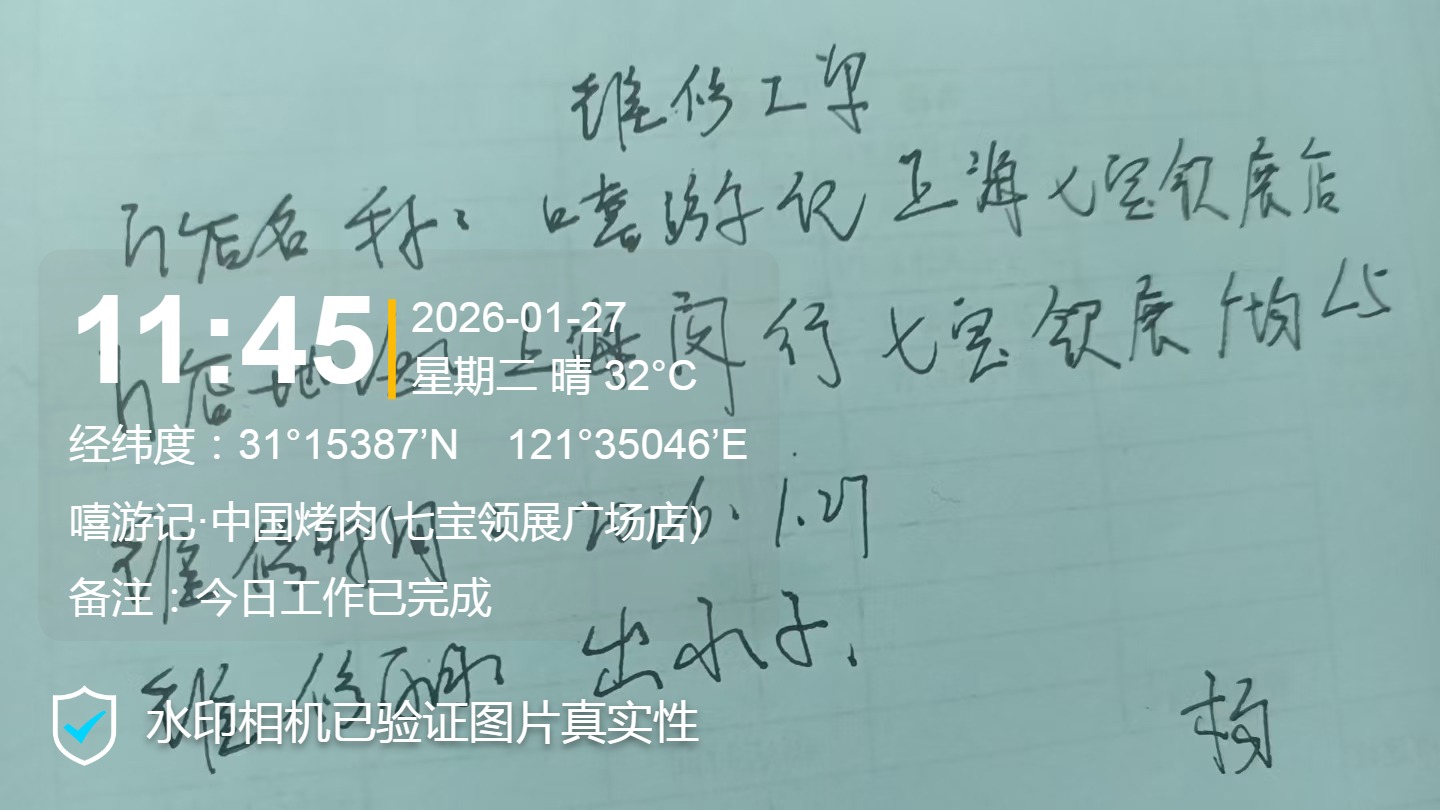 维修工单
门店名称：嘻游记上海七宝领展店
门店地址 上海闵行七宝领展广场L5
维修时间：2026.1.27
维修 出水子.
杨
11:45
2026-01-27
星期二 晴 32°C
经纬度：31°15387’N 121°35046’E
嘻游记·中国烤肉(七宝领展广场店)
备注：今日工作已完成
水印相机已验证图片真实性